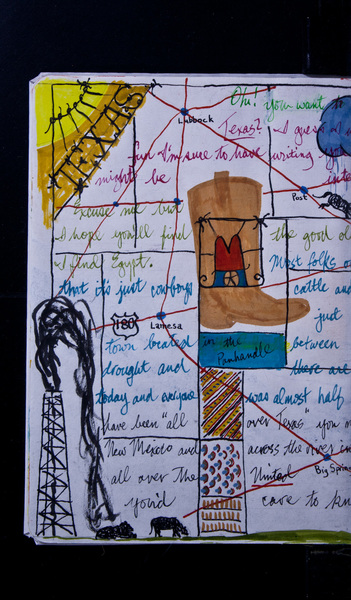 West
TEXAS
Oh! You want to
Lubbock
Texas? I guess I
fun I'm sure to have writing you
might be
Post
Excuse me but
I hope you'll find
the good ol
I find Egypt.
Most folks
that it's just cowboys
cattle and
just
180
Lamesa
town located
in the
Panhandle
between
drought and
there are
today and everyone
was almost half
have been "all
over Texas" you
New Mexico and
across the river in
all over the
United
Big Spring
you'd
care to kn